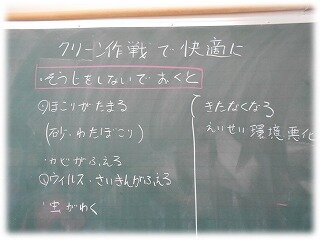 クリーン作戦で快適に
・そうじをしないでおくと
ほこりがたまる
(砂・わたぼこり)
・カビがふえる
ウィルス・さいきんがふえる
・虫がわく
きたなくなる
えいせい環境悪化